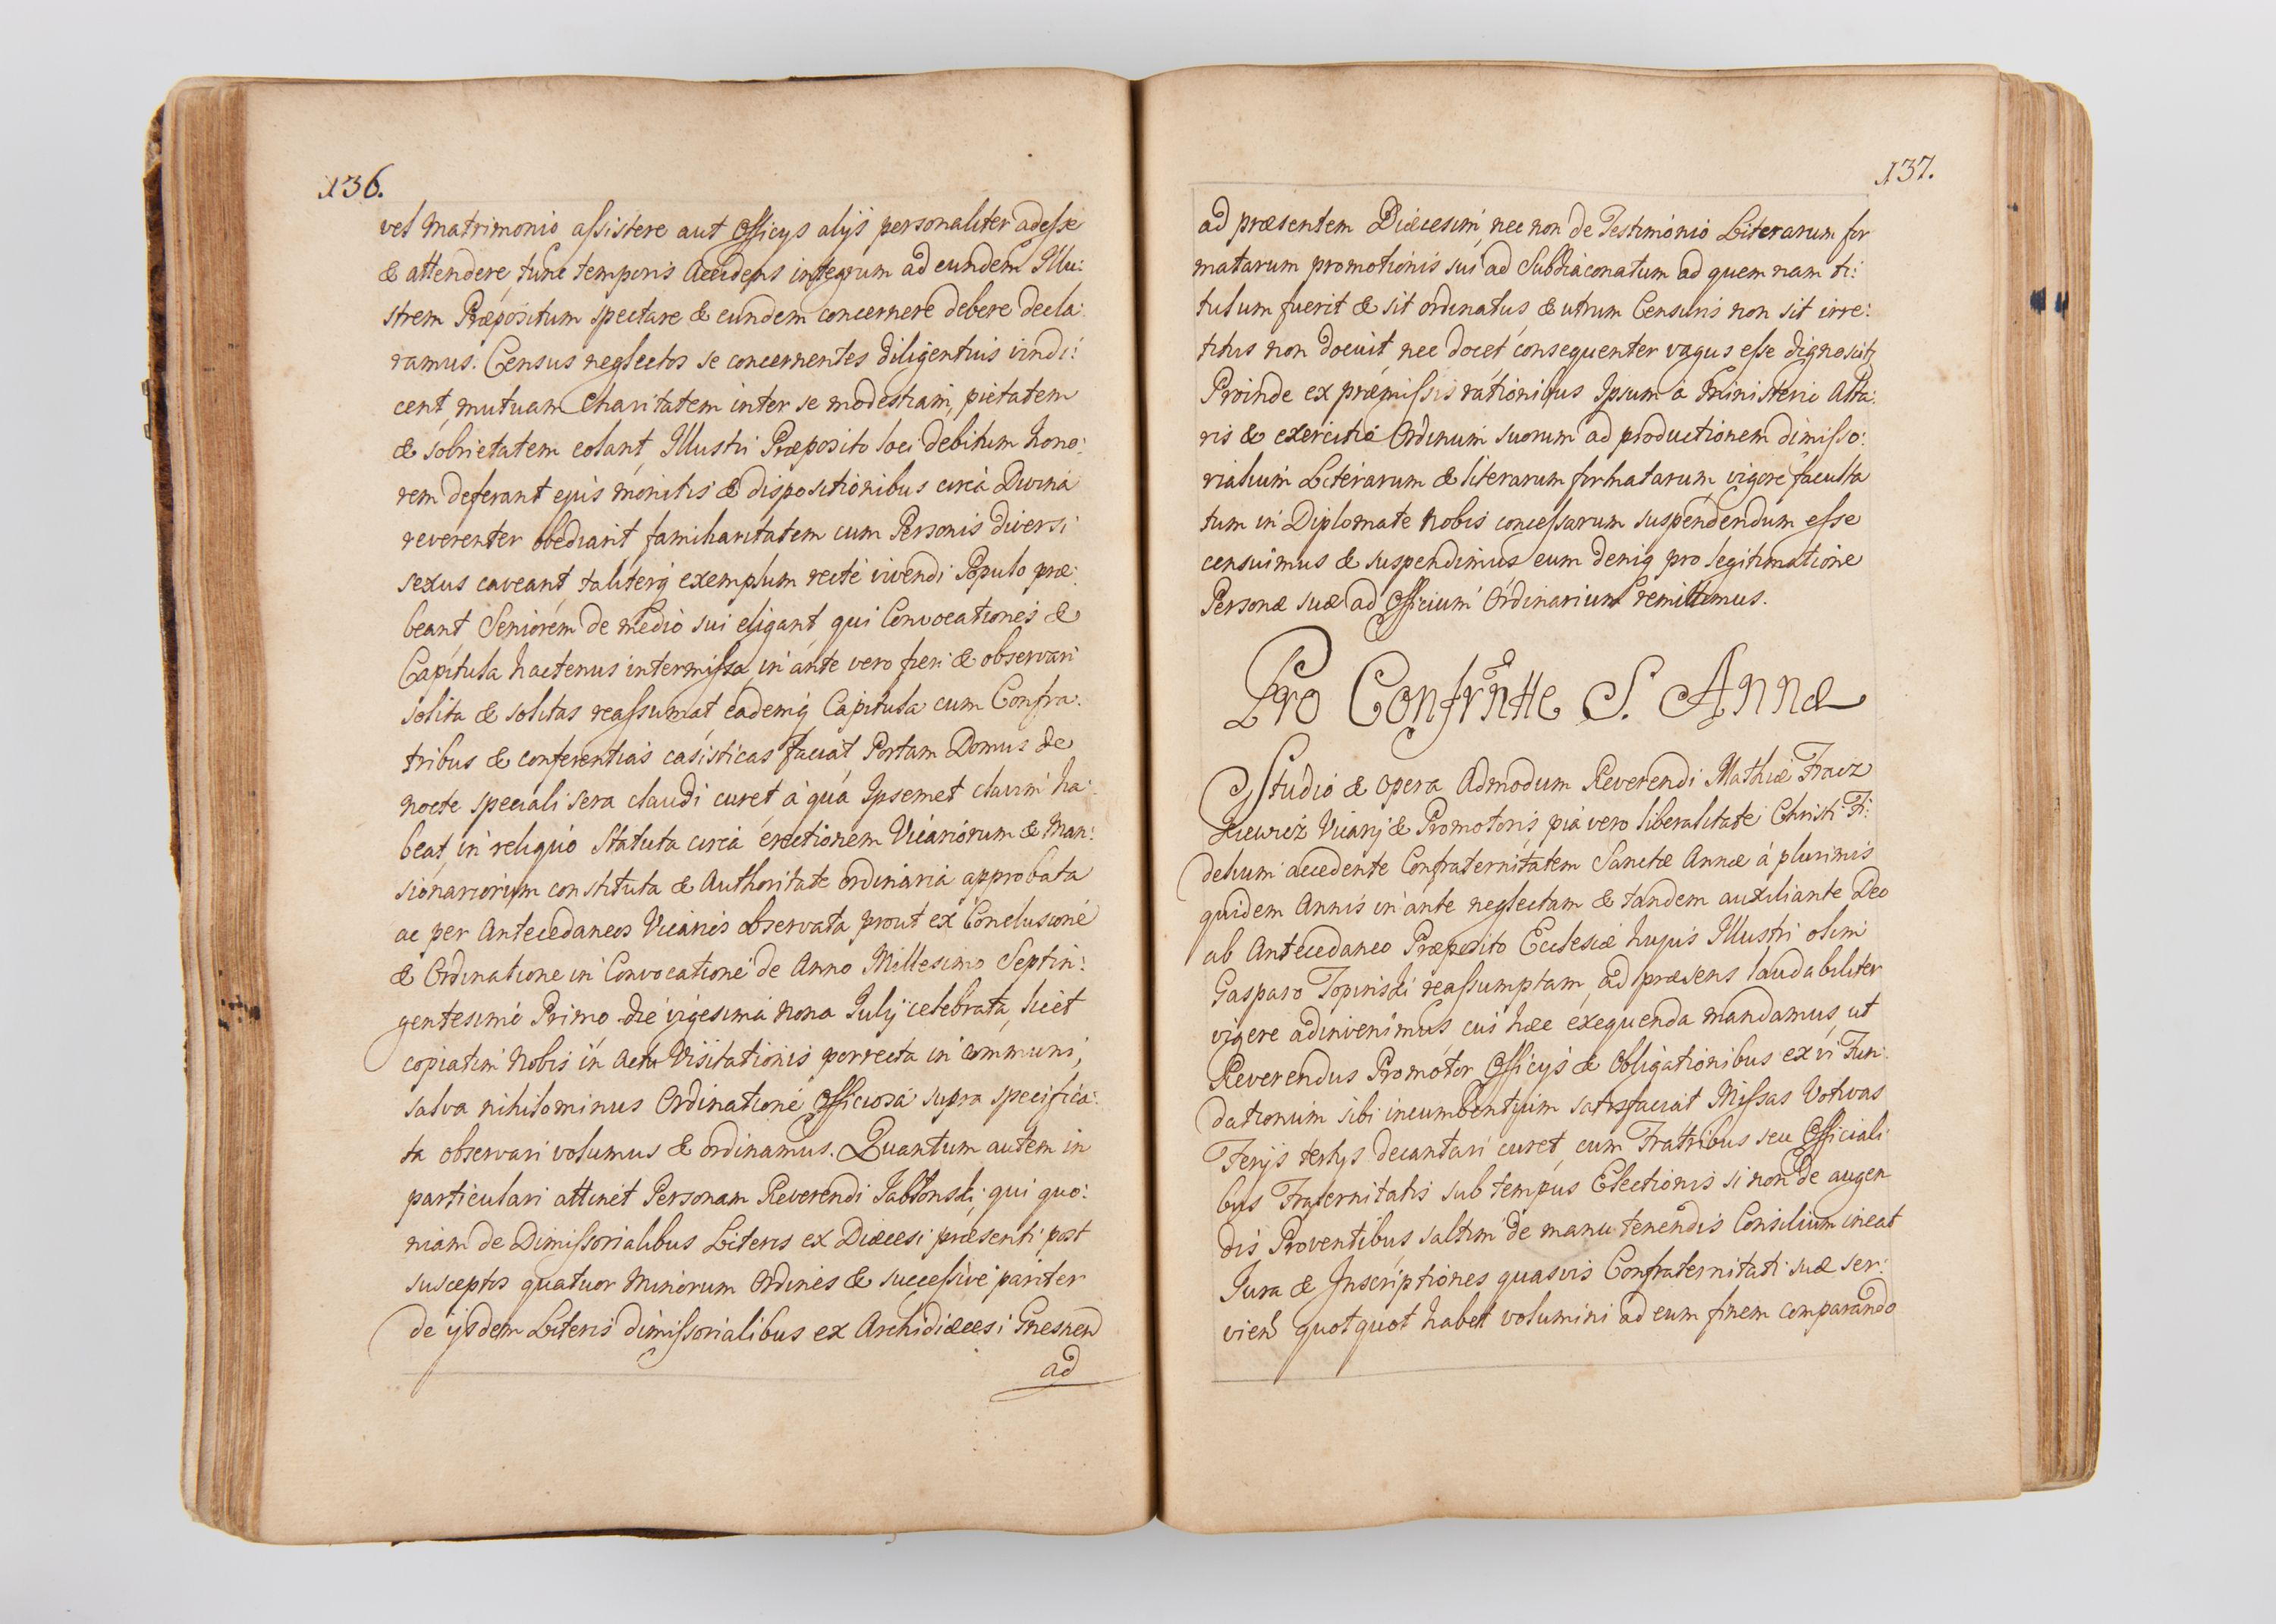 136.
vel Matrimonio assistere aut Officys alijs personaliter adesse
& attendere, tunc temporis Accidens integrum ad eundem Illu:
strem Præpositum spectare & eundem concernere debere decla:
ramus. Census neglectos se concernentes diligentius vindi:
cent, mutuam Charitatem inter se modestiam, pietatem
& sobrietatem colant, Illustri Præposito loci debitum hono:
rem deferant ejus monitis & dispositionibus circa Divina
reverenter obediant familiaritatem cum Personis diversi
sexus caveant, taliterq exemplum recté vivendi Populo præ:
beant Seniorem de medio sui eligant, qui Convocationes &
Capitula hactenus intermissa, in ante vero fieri & observari
solita & solitas reassumat eademq Capitula cum Confra:
tribus & conferentias casisticas faciat Portam Domus de
nocte speciali sera claudi curet, á qua Ipsemet clavim ha:
beat, in reliquo Statuta circa erectionem Vicariorum & Man:
sionariorum constituta & Authoritate ordinaria approbata
ac per Antecedaneos Vicarios observata prout ex Conclusione
& Ordinatione in Convocatione de Anno Millesimo Septin:
gentesimo Primo die vigesima nona July celebrata, licet
copiatim Nobis in Actu Visitationis porrecta in communi,
salva nihilominus Ordinatione Officiosa supra specifica:
ta observari volumus & ordinamus. Quantum autem in
particulari attinet Personam Reverendi Jabłonski qui quo:
niam de Dimissorialibus Literis ex Diæcesi præsenti post
susceptos quatuor Minorum Ordines & successive pariter
de ijsdem Literis dimissorialibus ex Archidiæcesi Gnesnen
ad
137.
ad præsentem Diæcesim, nec non de Testimonio Literarum for
matarum promotionis sui ad Subdiaconatum ad quem nam ti:
tulum fuerit & sit ordinatus, & utrum Censuris non sit irre:
titus non docuit, nec docet consequenter vagus esse dignoscitz
Proinde ex præmissis rationibus Ipsum á Ministerio Alta:
ris & exercitio Ordinum suorum ad productionem dimisso:
rialium Literarum & literarum formatarum, vigore faculta
tum in Diplomate Nobis concessarum suspendendum esse
censuimus & suspendimus eum deniq pro legitimatione
Personæ suæ ad Officium Ordinarium remittimus.
Pro Confrñtte S. Annæ
Studio & opera Admodum Reverendi Mathiæ Fracz
kiewicz Vicarij & Promotoris, pia vero liberalitate Christi Fi:
delium accedente Confraternitatem Sanctæ Annæ á plurimis
quidem Annis in ante neglectam & tandem auxiliante Deo
ab Antecedaneo Præposito Ecclesiæ hujus Illustri olim
Gasparo Topinski reassumptam, ad præsens laudabiliter
vigere adinvenimus cui hæc exequenda mandamus, ut
Reverendus Promotor Officijs & Obligationibus ex vi Fun:
dationum sibi incumbentium satisfaciat Missas Votivas
Ferijs tertijs decantari curet, cum Frattribus seu Officiali
bus Fraternitatis sub tempus Electionis si non de augen
dis Proventibus saltim de manu tenendis Consilium ineat
Jura & Inscriptiones quasvis Confraternitati suæ ser:
vien quotquot habet volumini ad eum finem comparando